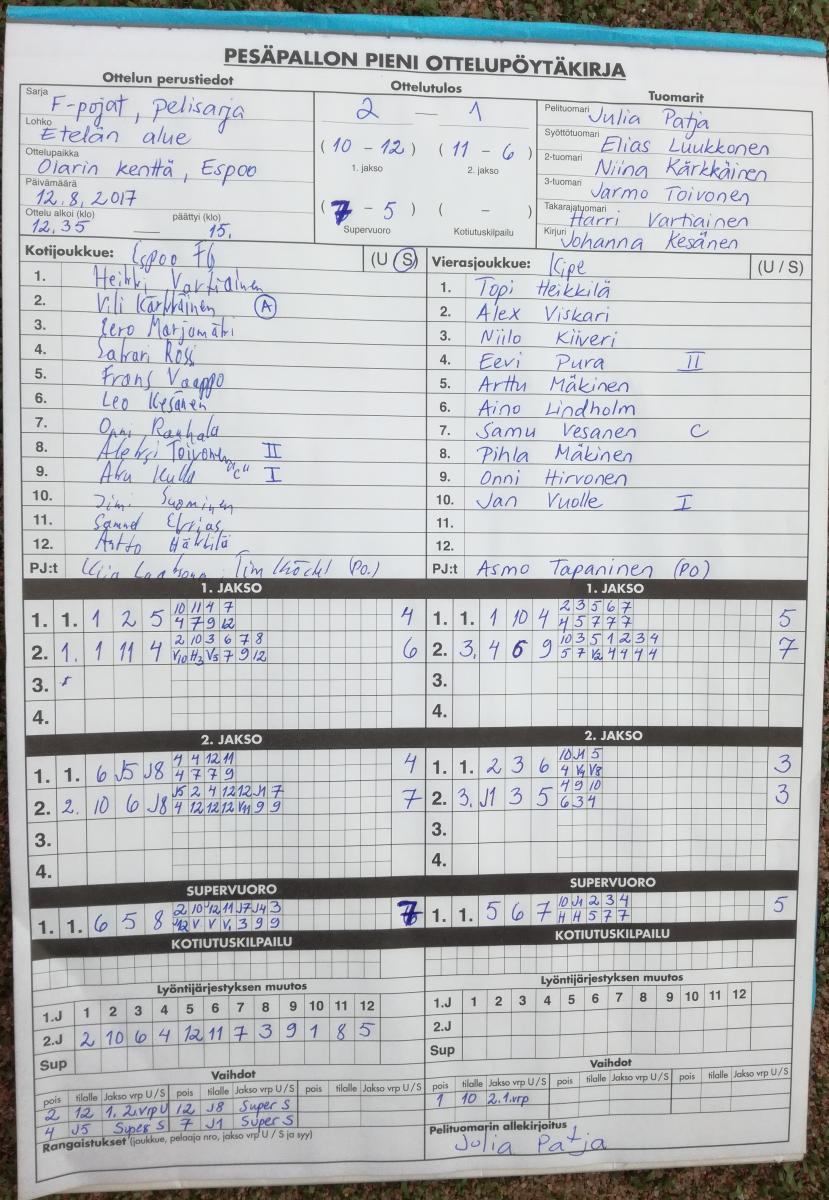 PESÄPALLON PIENI OTTELUPÖYTÄKIRJA
Ottelun perustiedot
Sarja F-pojat, pelisarja
Lohko Etelän alue
Ottelupaikka Olarin kenttä, Espoo
Päivämäärä 12.8.2017
Ottelu alkoi (klo) päättyi (klo)
12.35 — 15.
Ottelutulos
2 — 1
(10 - 12) (11 - 6)
1. jakso 2. jakso
(7 - 5) ( - )
Supervuoro Kotiutuskilpailu
Tuomarit
Pelituomari Julia Patja
Syöttötuomari Elias Luukkonen
2-tuomari Niina Kärkkäinen
3-tuomari Jarmo Toivonen
Takarajatuomari Harri Vartiainen
Kirjuri Johanna Kesänen
Kotijoukkue: Espoo (U / S)
1. Heikki Vartiainen
2. Vili Kärkkäinen A
3. Eero Marjamäki
4. Sakari Rossi
5. Frans Vaappo
6. Leo Kesänen
7. Onni Rauhala
8. Aleksi Toivonen II
9. Aku Kulla "C" I
10. Jimi Suominen
11. Samuel
12. Artto
PJ:t Tim (PO.)
Vierasjoukkue: Kipe (U / S)
1. Topi Heikkilä
2. Alex Viskari
3. Niilo Kiiveri
4. Eevi Pura II
5. Arttu Mäkinen
6. Aino Lindholm
7. Samu Vesanen C
8. Pihla Mäkinen
9. Onni Hirvonen
10. Jan Vuolle I
11.
12.
PJ:t Asmo Tapaninen (PO)
1. JAKSO
10 11 4 7
1. 1. 1 2 5 4 7 9 12 4
2 10 3 6 7 8
2. 1. 1 11 4 V10 H3 V5 7 9 12 6
3.
4.
1. JAKSO
2 3 5 6 7
1. 1. 1 10 4 4 5 7 7 7 5
10 3 5 1 2 3 4
2. 3. 4 6 9 5 7 V2 4 4 4 4 7
3.
4.
2. JAKSO
4 4 12 11
1. 1. 6 J5 J8 4 7 7 9 4
J5 2 4 12 12 J1 7
2. 2. 10 6 J8 4 12 12 12 V11 9 9 7
3.
4.
2. JAKSO
10 J1 5
1. 1. 2 3 6 4 V4 V8 3
4 9 10
2. 3. J1 3 5 6 3 4 3
3.
4.
SUPERVUORO
2 10 12 11 J7 J4 3
1. 1. 6 5 8 V V V 3 9 9 7
SUPERVUORO
10 J1 2 3 4
1. 1. 5 6 7 H H 5 7 7 5
KOTIUTUSKILPAILU
KOTIUTUSKILPAILU
Lyöntijärjestyksen muutos
1.J 1 2 3 4 5 6 7 8 9 10 11 12
2.J 2 10 6 4 12 11 7 3 9 1 8 5
Sup
Lyöntijärjestyksen muutos
1.J 1 2 3 4 5 6 7 8 9 10 11 12
2.J
Sup
Vaihdot
pois tilalle Jakso vrp U/S pois tilalle Jakso vrp U/S pois tilalle Jakso vrp U/S
2 12 1. 2.vrp U 12 J8 Super S
4 J5 Super S 7 J1 Super S
Rangaistukset (joukkue, pelaaja nro, jakso vrp U / S ja syy)
Vaihdot
pois tilalle Jakso vrp U/S pois tilalle Jakso vrp U/S pois tilalle Jakso vrp U/S
1 10 2.1.vrp
Pelituomarin allekirjoitus
Julia Patja